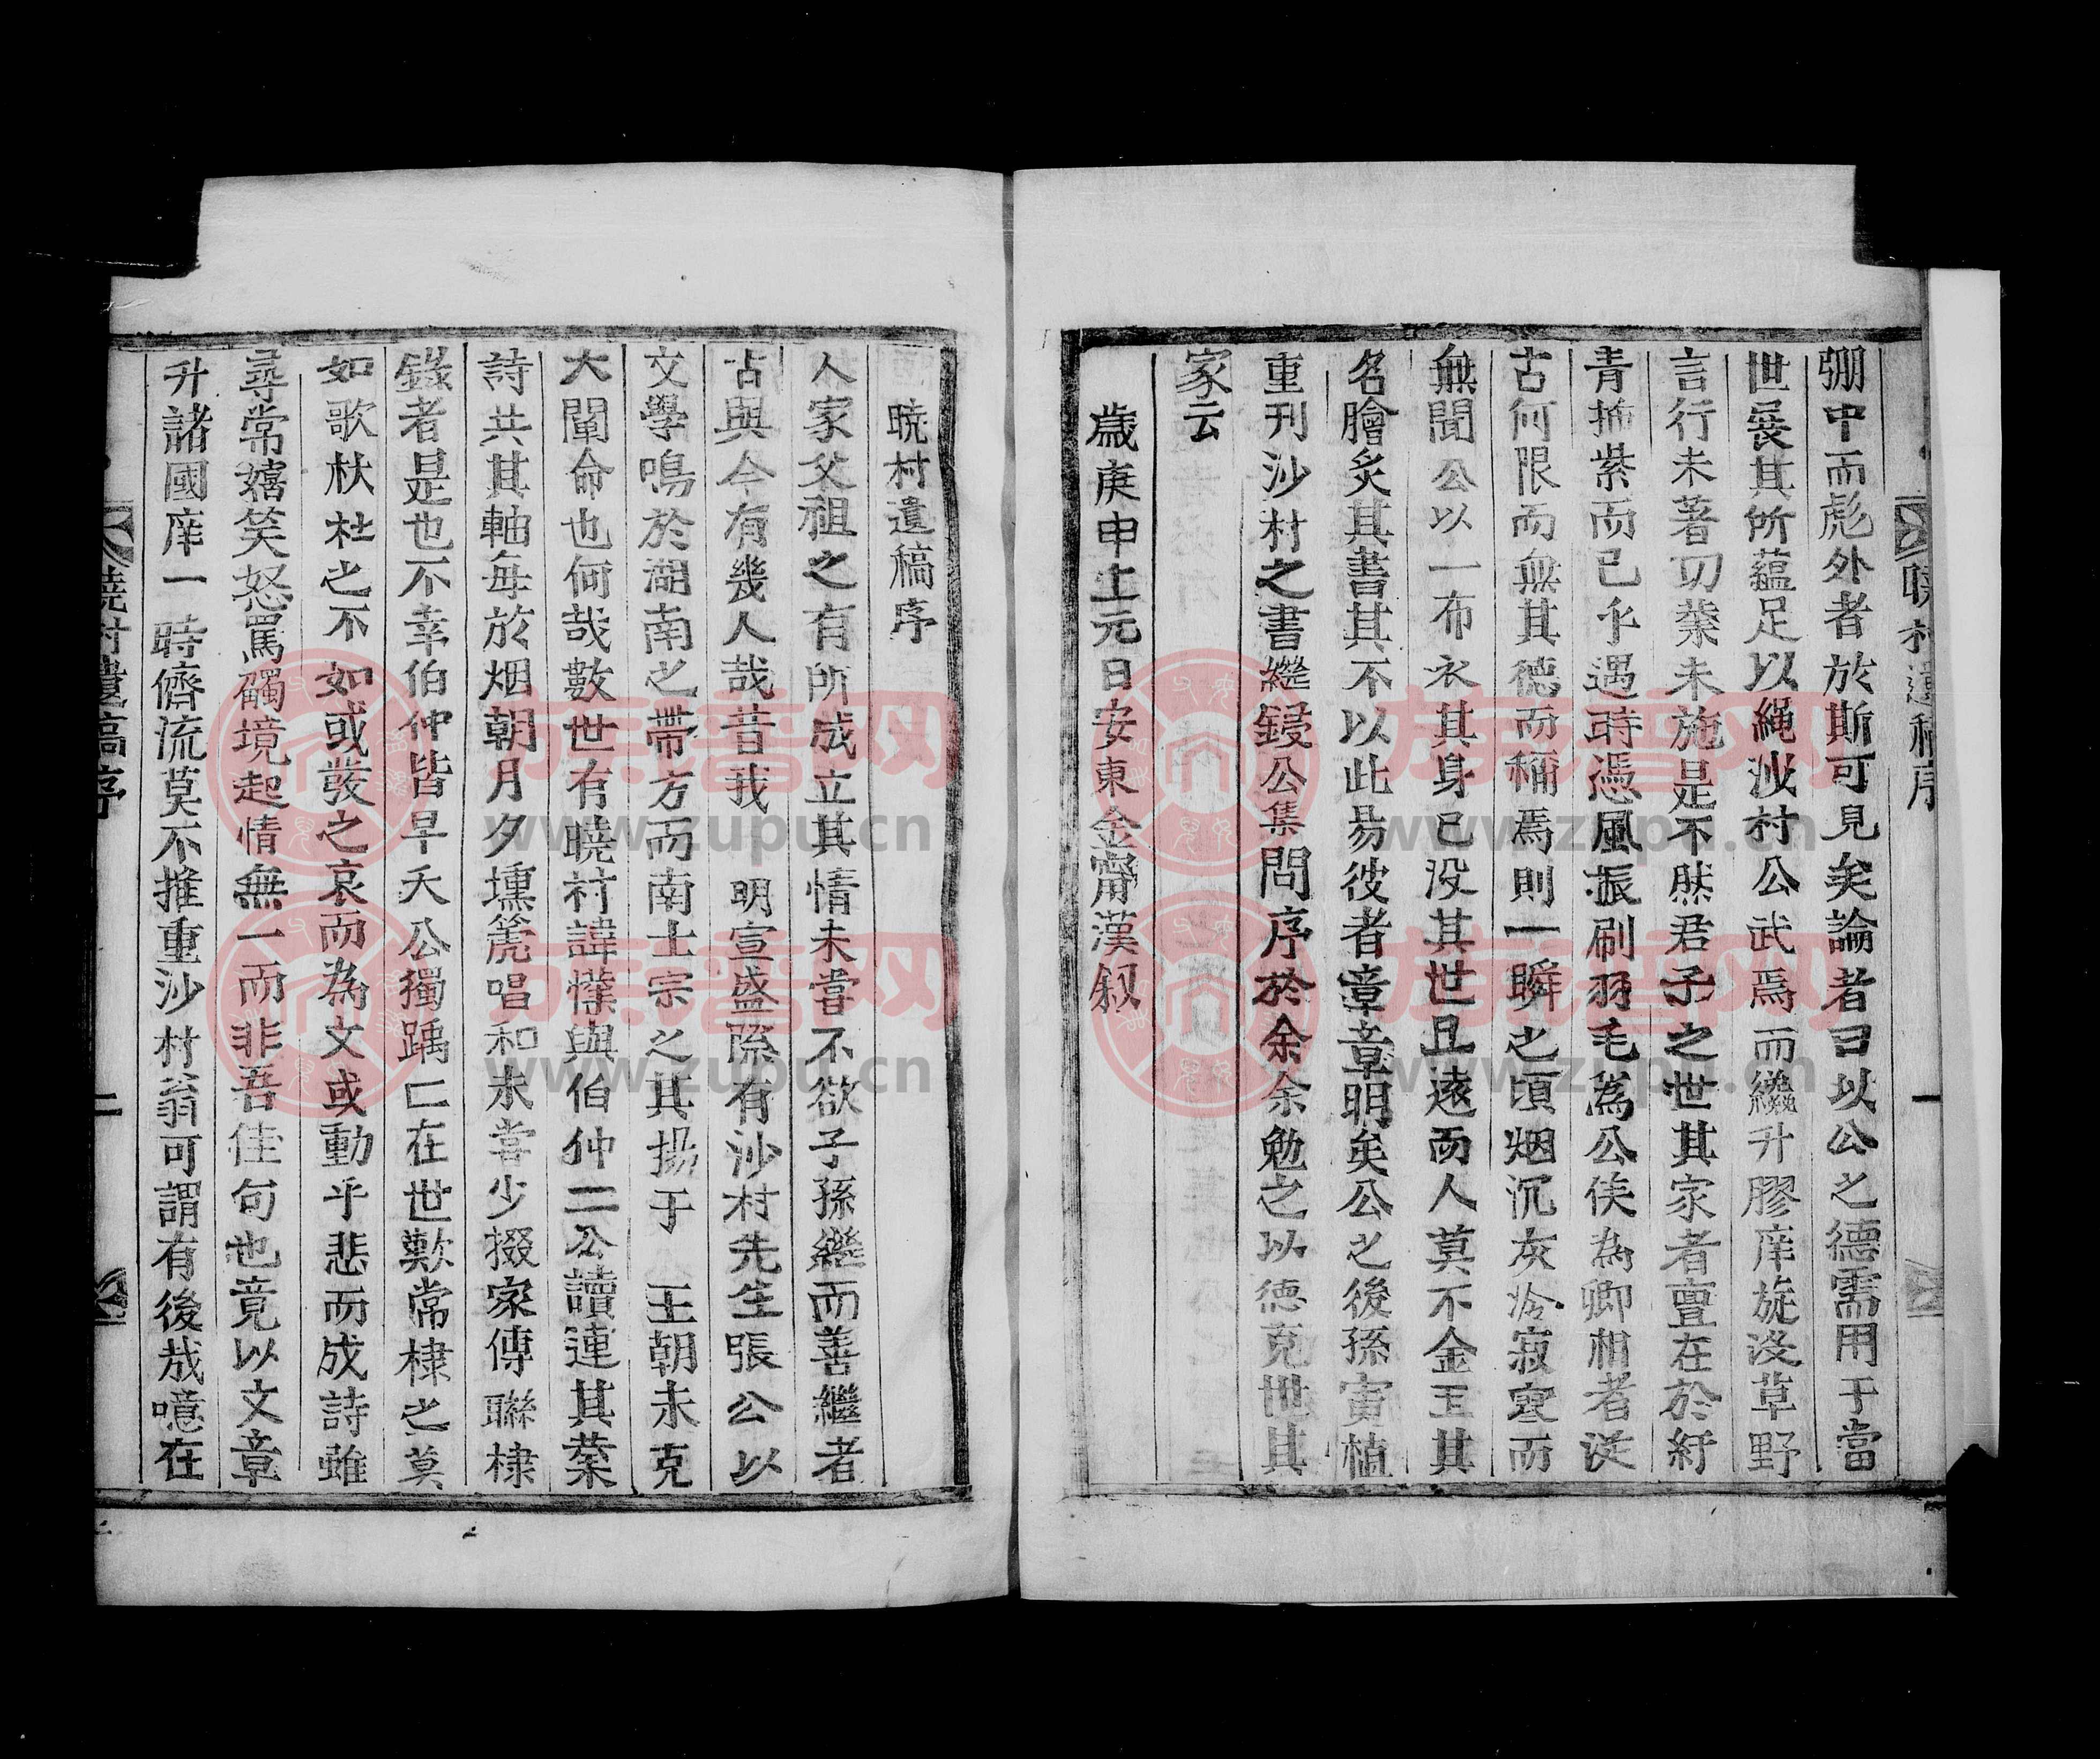 弸中而彪外者於斯可見矣論者曰以公之德需用于當
世展其所蘊足以繩沙村公武焉而纔升膠庠旋沒草野
言行未著功業未施是不然君子之世其家者亶在於紆
青拖紫而已乎遇時憑風振刷羽毛爲公侯為卿相者從
古何限而無其德而稱焉則一瞬之頃烟沉灰冷寂寞而
無聞公以一布衣其身已沒其世且遠而人莫不金玉其
名膾炙其書其不以此易彼者章章明矣公之後孫寅植
重刊沙村之書繼鋟公集問序於余余勉之以德克世其
家云
歲庚申上元日安東金甯漢叙
曉村遺稿序
一
曉村遺稿序
人家父祖之有所成立其情未嘗不欲子孫繼而善繼者
古與今有幾人哉昔我 明宣盛際有沙村先生張公以
文學鳴於湖南之帶方而南士宗之其揚于 王朝未克
大闡命也何哉數世有曉村諱㦜與伯仲二公讀連其業
詩共其軸每於烟朝月夕壎篪唱和未嘗少掇家傳聯棣
錄者是也不幸伯仲皆早夭公獨踽亡在世歎常棣之莫
如歌杕杜之不如或發之哀而為文或動乎悲而成詩雖
尋常嬉笑怒罵觸境起情無一而非吾佳句也竟以文章
升諸國庠一時儕流莫不推重沙村翁可謂有後哉噫在
曉村遺稿序
二
族譜网
www.zupu.cn
族譜网
www.zupu.cn
族譜网
www.zupu.cn
族譜网
www.zupu.cn